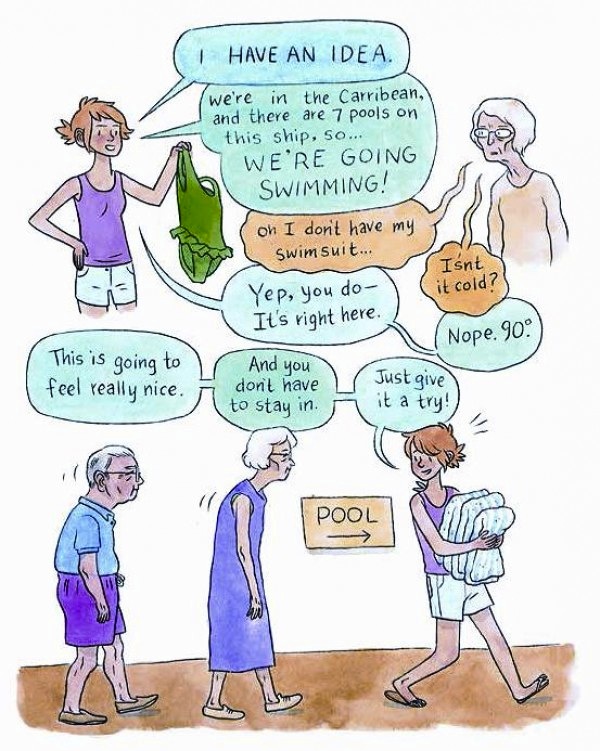 I HAVE AN IDEA.
We're in the Carribean,
and there are 7 pools on
this ship, so...
WE'RE GOING
SWIMMING!
Oh I don't have my
swimsuit...
Isn't
it cold?
Yep, you do—
It's right here.
Nope. 90°.
This is going to
feel really nice.
And you
don't have
to stay in.
Just give
it a try!
POOL